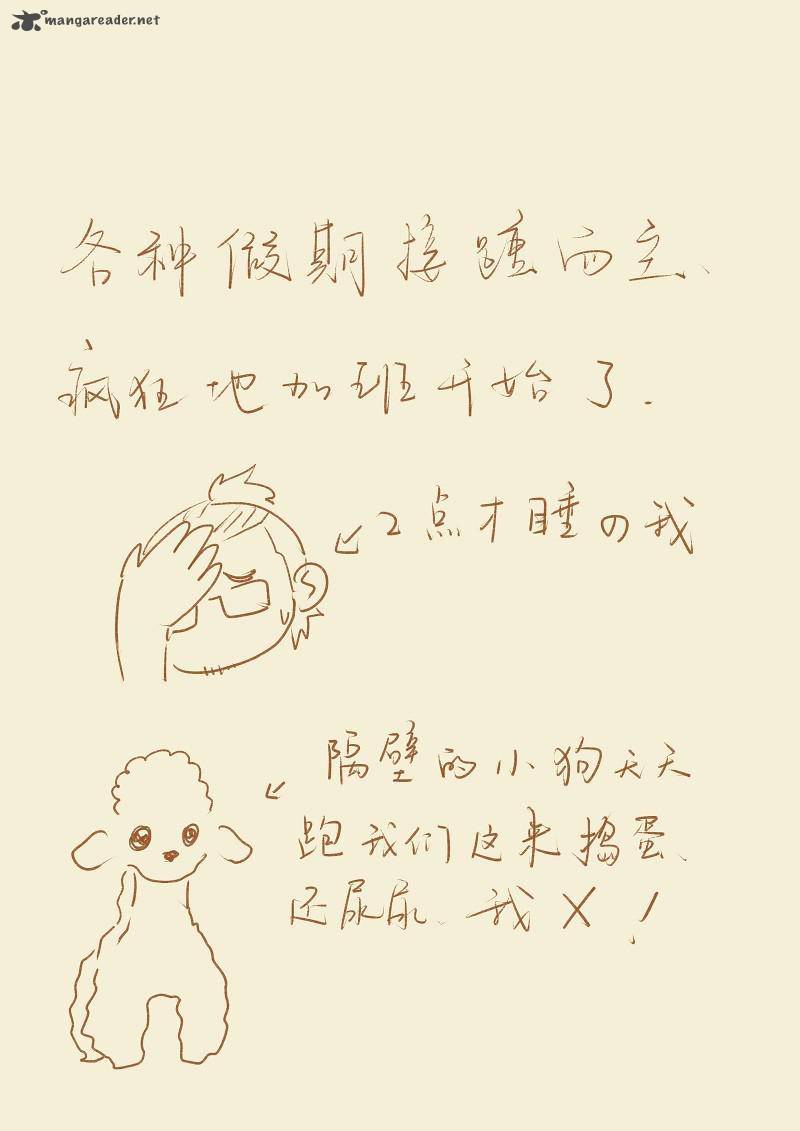 mangareader.net
各种假期接踵而至、
疯狂地加班开始了.
2点才睡の我
隔壁的小狗天天
跑我们这来捣蛋、
还尿尿、我X!